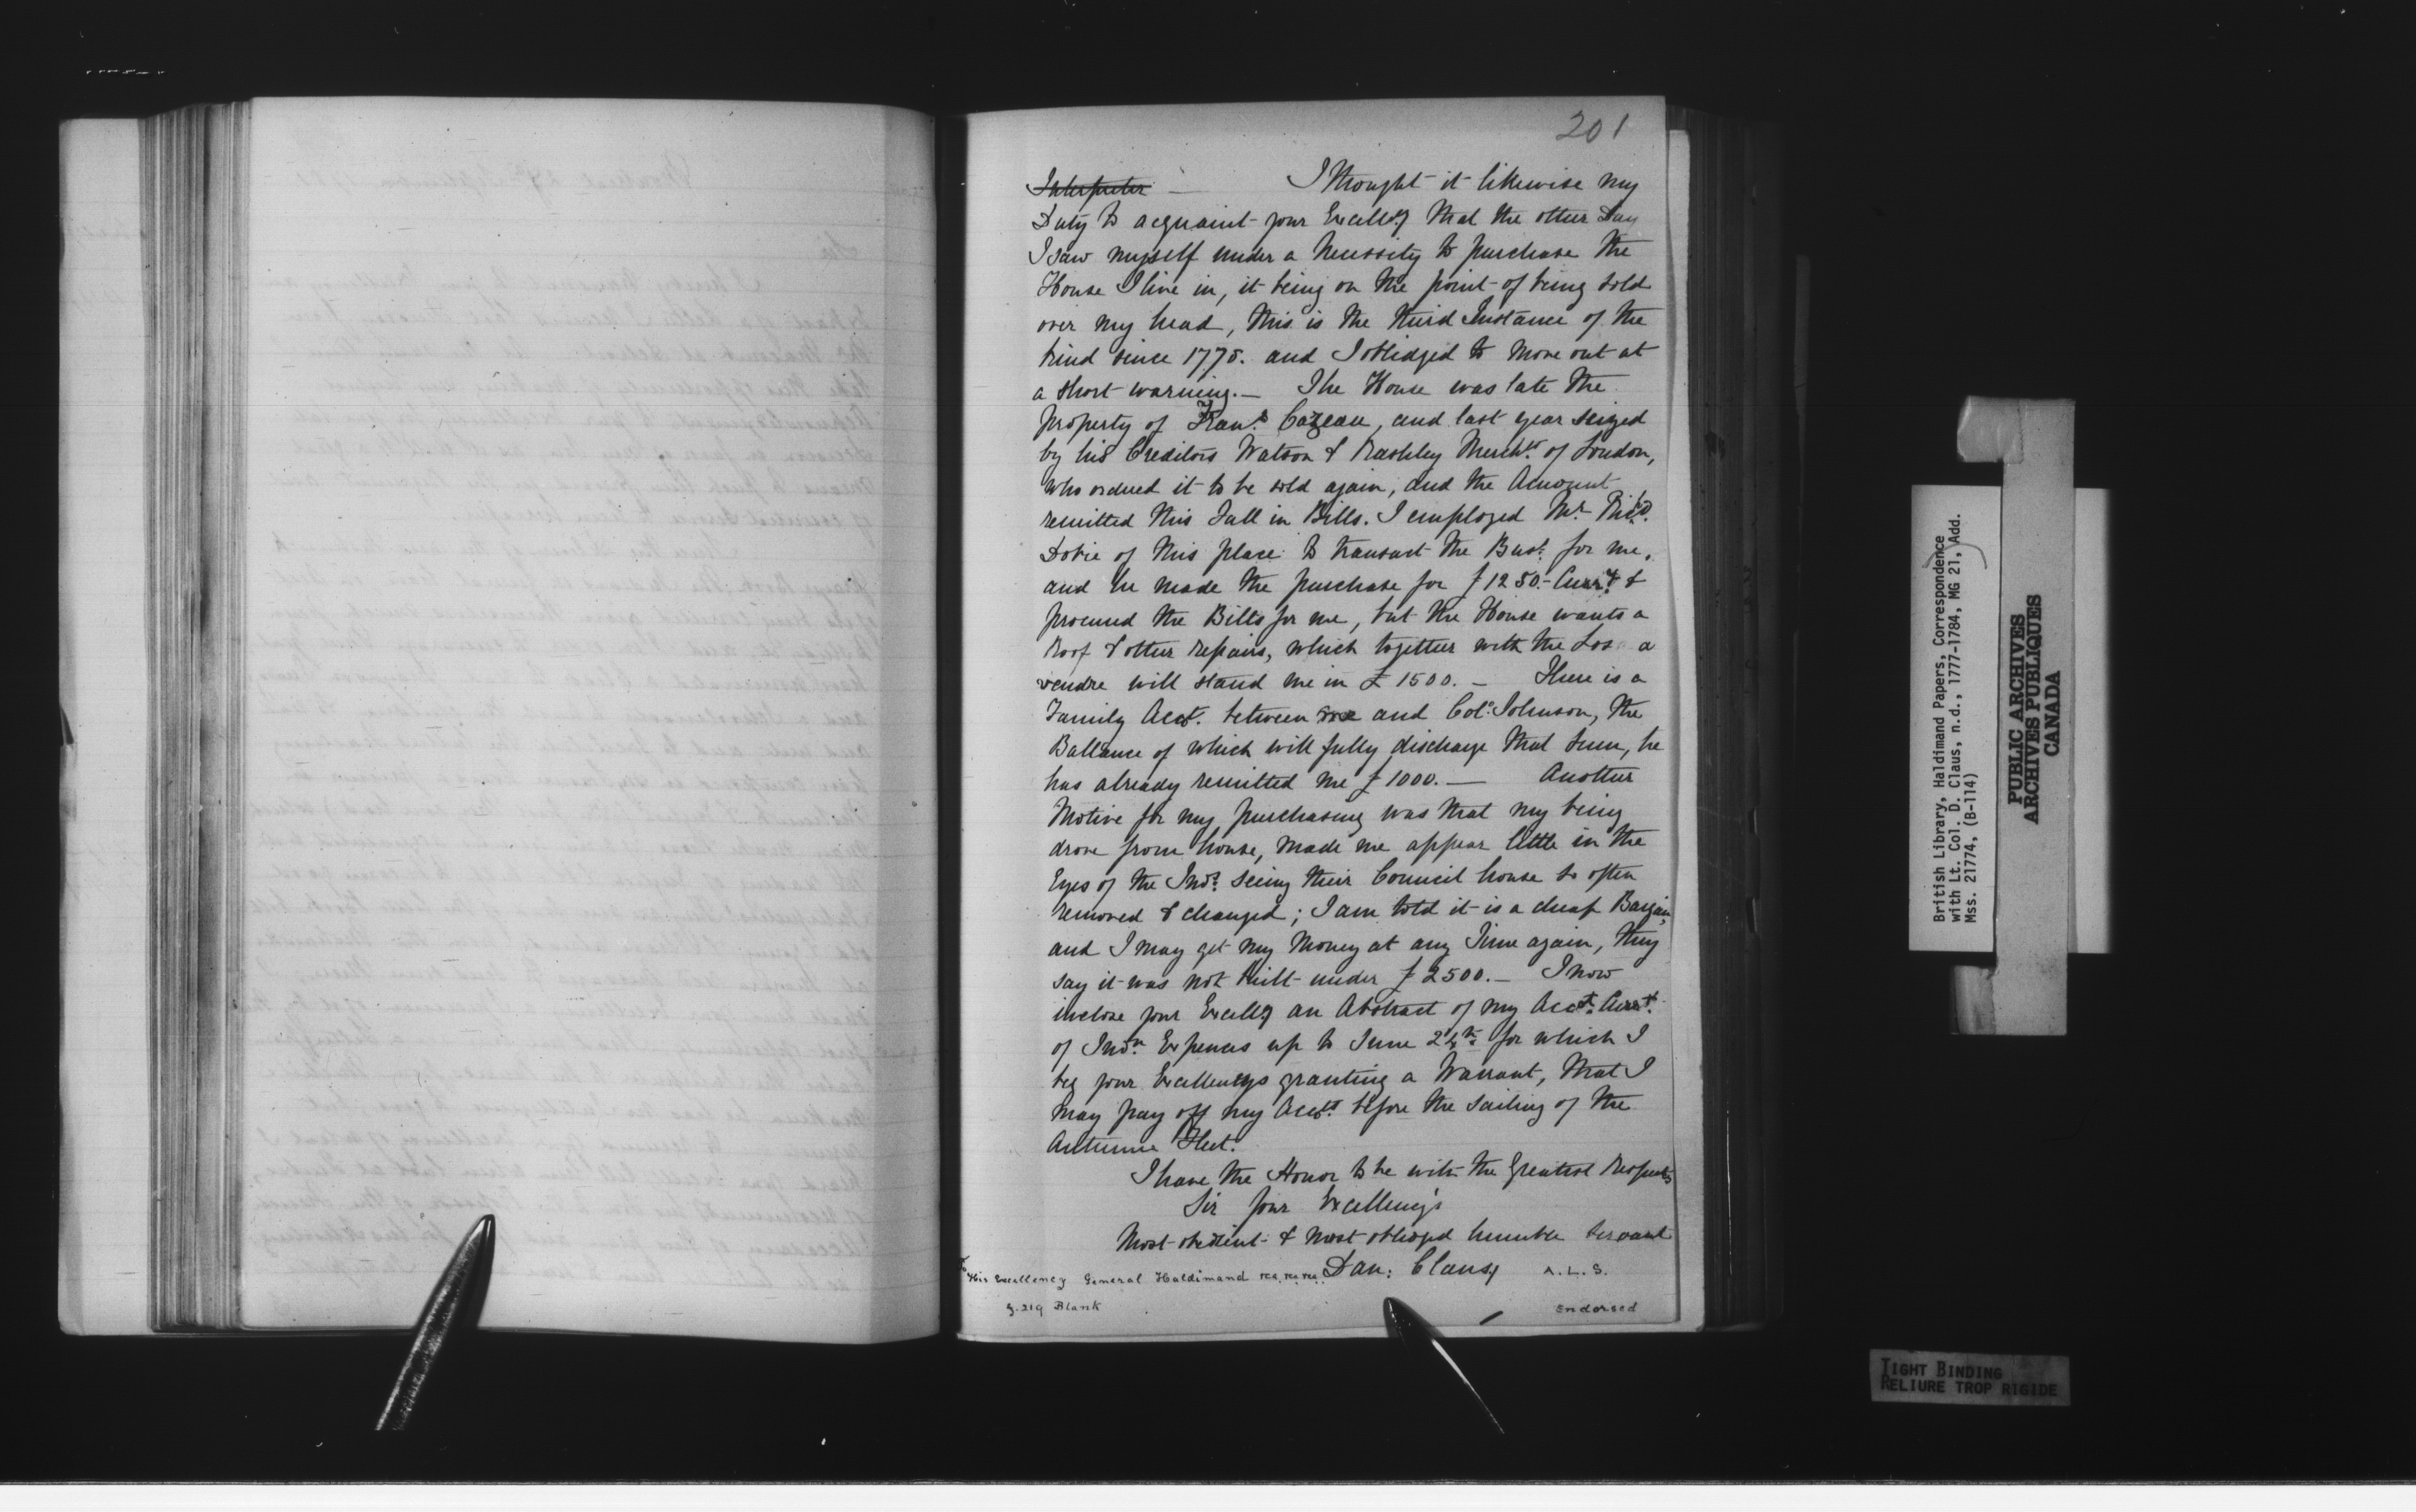 201
Interpreter — I thought it likewise my
Duty to acquaint your Excell:y that the other Day
I saw myself under a Necessity to purchase the
House I live in, it being on the point of being sold
over my head, this is the third Instance of the
kind since 1775. and I oblidged to move out at
a short warning.— The House was late the
property of Fran:s Cazeau, and last year seized
by his Creditors Watson & Rashley Mercht.s of London,
who ordered it to be sold again, and the Amount
remitted this Fall in Bills. I employed Mr. Rich.d
Dobie of this place to transact the Bus:s for me,
and he made the purchase for £1250.- Curr:y &
procured the Bills for me, but the House wants a
Roof & other repairs, which together with the a
vendre will stand me in £1500. — There is a
Family Acct. between me and Col:o Johnson, the
Ballance of which will fully discharge that Sum, he
has already remitted me £1000. — Another
Motive for my purchasing was that my being
drove from house, made me appear little in the
Eyes of the Ind:s seeing their Council house so often
removed & changed; I am told it is a cheap Bargain,
and I may get my Money at any Time again, they
say it was not built under £2500.— I now
inclose your Excell:y an Abstract of my Acct. Curr:t.
of Ind:n Expences up to June 24th: for which I
beg your Excellencys granting a Warrant, that I
may pay off my Acc:ts before the sailing of the
Autumn Fleet.
I have the Honor to be with the Greatest Respects
Sir Your Excellency's
Most obedient & most obliged humble Servant
Dan: Claus A.L.S.
To His Excellency General Haldimand &ca. &ca. &ca.
Blank Endorsed
British Library, Haldimand Papers, Correspondence
with Lt. Col. D. Claus, n.d., 1777-1784, MG 21, Add.
Mss. 21774, (B-114)
PUBLIC ARCHIVES
ARCHIVES PUBLIQUES
CANADA
TIGHT BINDING
RELIURE TROP RIGIDE